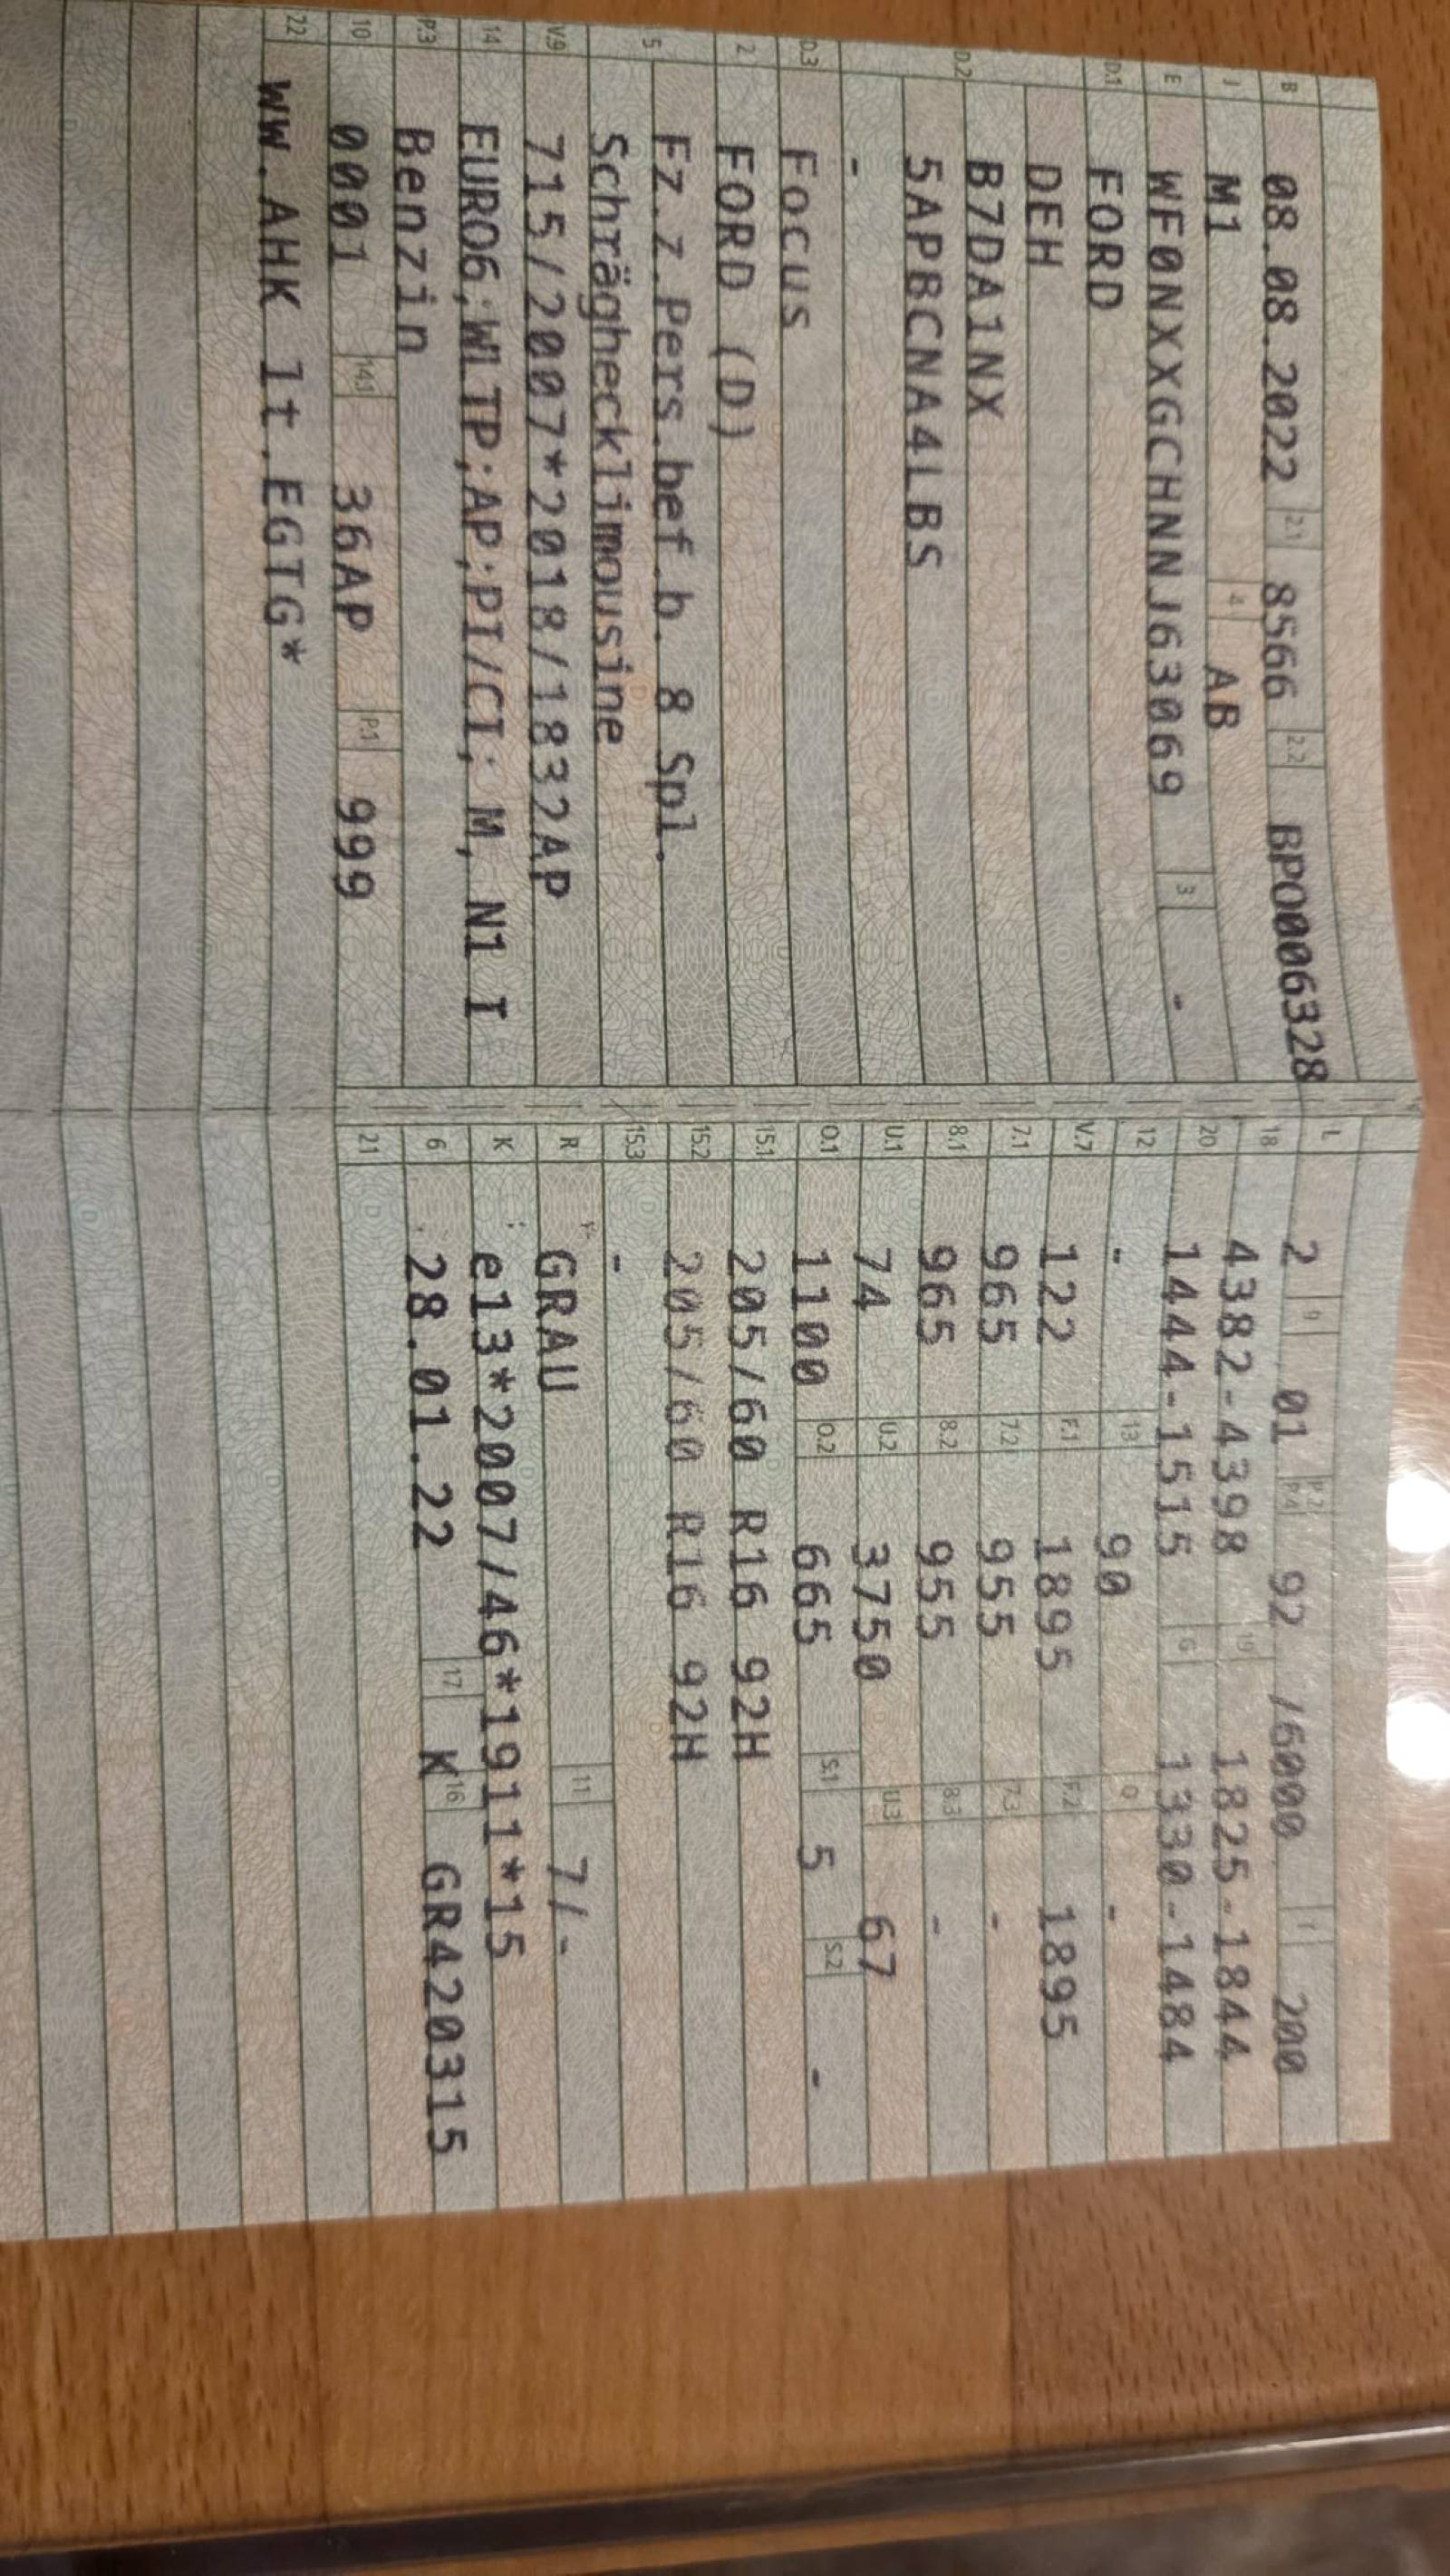 B 08.08.2022 2.1 8566 2.2 BPO006328
J M1 4 AB
E WF0NXXGCHNNJ63069 3 -
D.1 FORD
D.2 DEH
B7DA1NX
5APBCNA4LBS
-
D.3 Focus
2 FORD (D)
5 Fz.z.Pers.bef.b. 8 Spl.
Schräghecklimousine
V.9 715/2007*2018/1832AP
14 EURO6;WLTP;AP;PI/CI; M, N1 I
P.3 Benzin
10 0001 14.1 36AP P.1 999
22 WW.AHK lt.EGTG*
L 2 9 01 P.2/P.4 92 /6000 T 200
18 4382-4398 19 1825-1844
20 1444-1515 G 1330-1484
12 - 13 90 Q -
V.7 122 F.1 1895 F.2 1895
7.1 965 7.2 955 7.3 -
8.1 965 8.2 955 8.3 -
U.1 74 U.2 3750 U.3 67
O.1 1100 O.2 665 S.1 5 S.2 -
15.1 205/60 R16 92H
15.2 205/60 R16 92H
15.3 -
R GRAU 11 7/-
K e13*2007/46*1911*15
6 28.01.22 17 K 16 GR420315
21